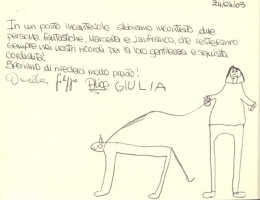 24/04/03
In un posto incantevole abbiamo incontrato due
persone fantastiche, Marcella e Gianfranco, che resteranno
sempre nei nostri ricordi per la loro gentilezza e squisita
cordialità!
Speriamo di rivederci molto presto!
Alice GIULIA